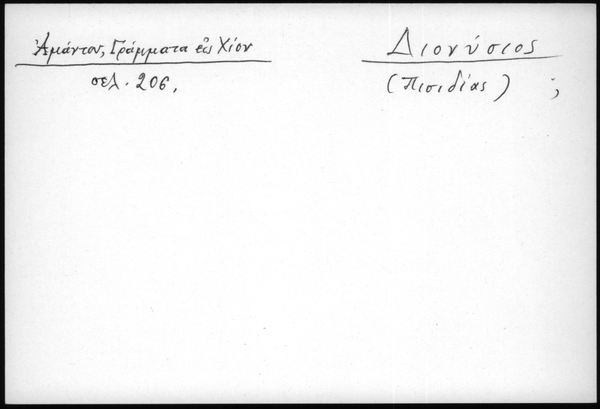 Ἀμάντου, Γράμματα εἰς Χίον
σελ. 206.
Διονύσιος
(Πισιδίας) ;